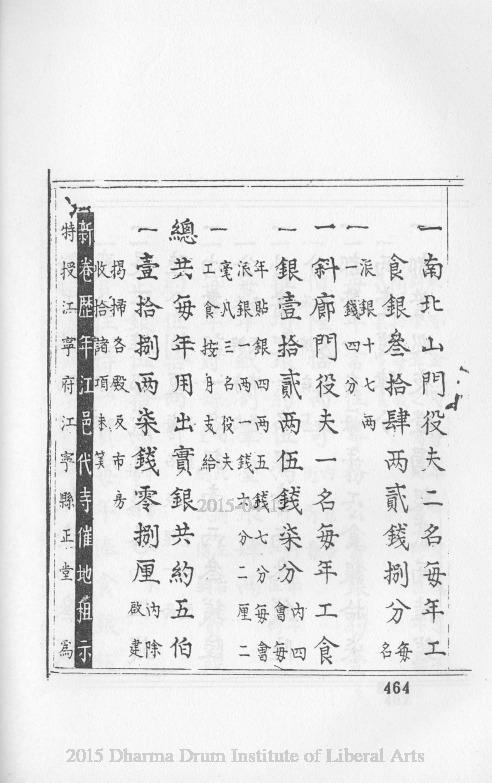 一南北山門役夫二名每年工
食銀叁拾肆兩貳錢捌分每名
一派銀十七兩
一錢四分
一斜廊門役夫一名每年工食
一銀壹拾貳兩伍錢柒分內四會每
年貼銀四兩五錢七分每會
派銀一兩一錢六分二厘二
一毫凡三名役夫
工食按身支給
總共每年用出實銀共約五伯
一壹拾捌兩柒錢零捌厘內除啟建
掃各殿及市房
收拾諸項未筭
新卷歷年江邑代寺催地租示
特授江寧府江寧縣正堂 為
464
2015 Dharma Drum Institute of Liberal Arts